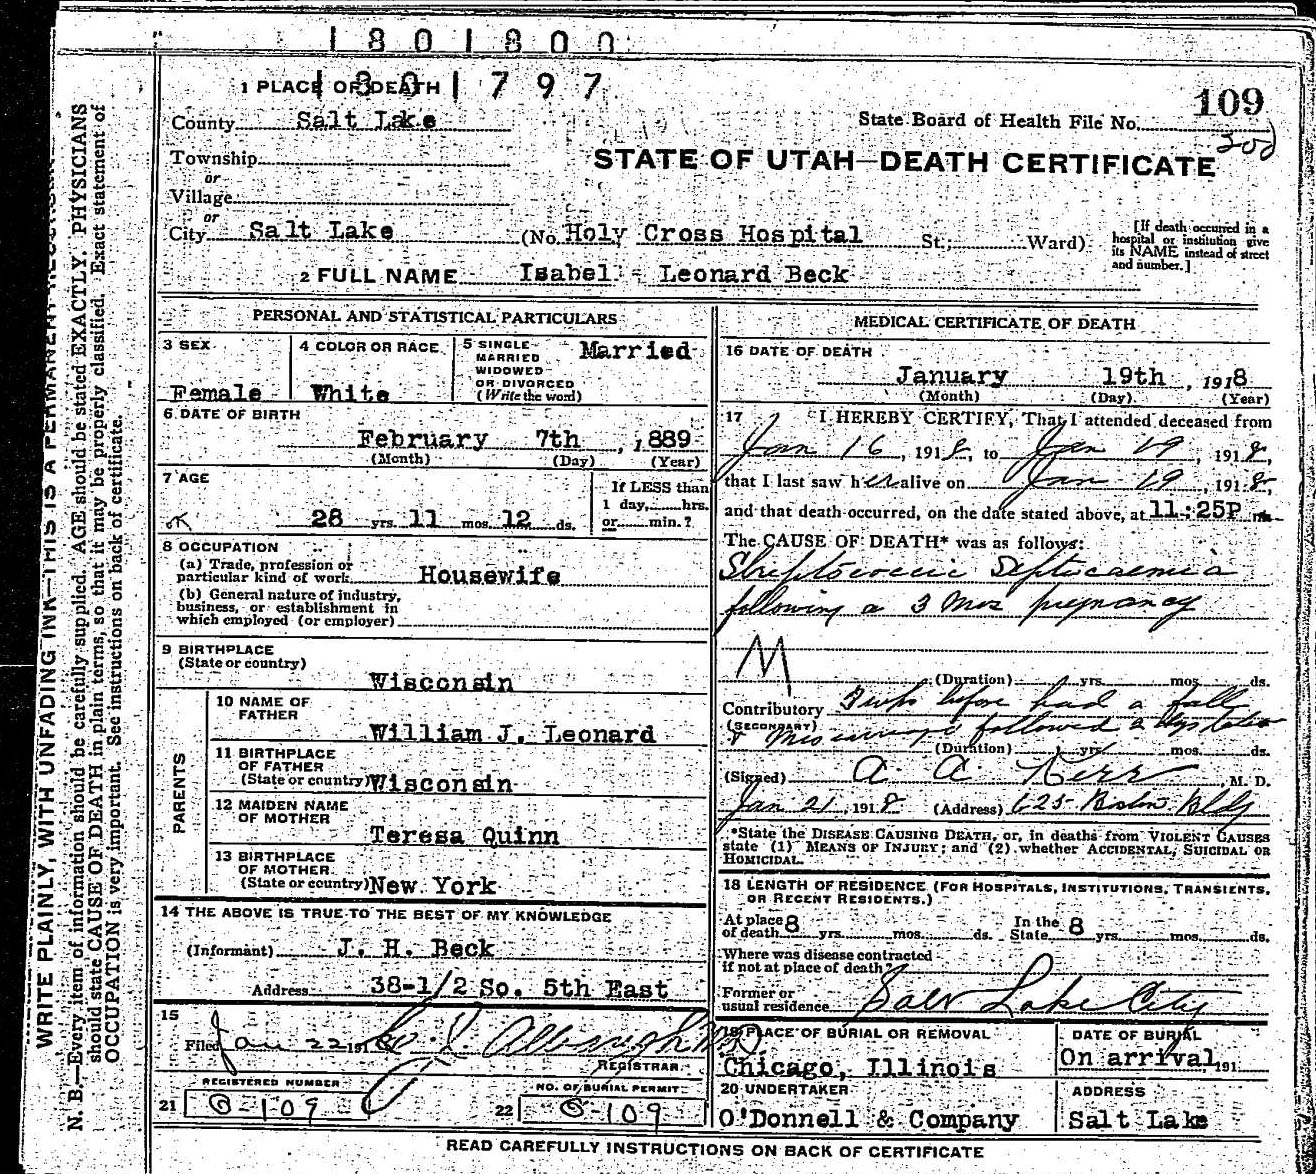 1801800
1801797
1 PLACE OF DEATH
109
County Salt Lake
State Board of Health File No.
Township
STATE OF UTAH—DEATH CERTIFICATE
or
Village
or
City Salt Lake (No. Holy Cross Hospital St.; Ward) [If death occurred in a hospital or institution give its NAME instead of street and number.]
2 FULL NAME Isabel - Leonard Beck
PERSONAL AND STATISTICAL PARTICULARS
3 SEX
Female
4 COLOR OR RACE
White
5 SINGLE
MARRIED
WIDOWED
OR DIVORCED
(Write the word)
Married
6 DATE OF BIRTH
February 7th , 1889
(Month) (Day) (Year)
7 AGE
28 yrs. 11 mos. 12 ds.
If LESS than
1 day, hrs.
or min.?
8 OCCUPATION
(a) Trade, profession or
particular kind of work Housewife
(b) General nature of industry,
business, or establishment in
which employed (or employer)
9 BIRTHPLACE
(State or country)
Wisconsin
PARENTS
10 NAME OF
FATHER
William J. Leonard
11 BIRTHPLACE
OF FATHER
(State or country) Wisconsin
12 MAIDEN NAME
OF MOTHER
Teresa Quinn
13 BIRTHPLACE
OF MOTHER
(State or country) New York
14 THE ABOVE IS TRUE TO THE BEST OF MY KNOWLEDGE
(Informant) J. H. Beck
Address 38-1/2 So. 5th East
15
Filed Jan 22 191
REGISTRAR
REGISTERED NUMBER
21 G-109
NO. OF BURIAL PERMIT
22 G-109
MEDICAL CERTIFICATE OF DEATH
16 DATE OF DEATH
January 19th , 1918
(Month) (Day) (Year)
17 I HEREBY CERTIFY, That I attended deceased from
Jan 16, 1918, to Jan 19, 1918,
that I last saw her alive on Jan 19, 1918,
and that death occurred, on the date stated above, at 11:25P m.
The CAUSE OF DEATH* was as follows:
Streptococcic Septicaemia
following a 3 Mos pregnancy
M
(Duration) yrs. mos. ds.
Contributory 3 wks before had a fall
(SECONDARY) & Miscarriage followed
(Duration) yrs. mos. ds.
(Signed) A. A. Kerr, M. D.
Jan 21, 1918 (Address) 625 Boston Bldg
*State the DISEASE CAUSING DEATH, or, in deaths from VIOLENT CAUSES
state (1) MEANS OF INJURY; and (2) whether ACCIDENTAL, SUICIDAL OR
HOMICIDAL.
18 LENGTH OF RESIDENCE (FOR HOSPITALS, INSTITUTIONS, TRANSIENTS,
OR RECENT RESIDENTS.)
At place of death 8 yrs. mos. ds. In the State 8 yrs. mos. ds.
Where was disease contracted
if not at place of death?
Former or
usual residence Salt Lake City
19 PLACE OF BURIAL OR REMOVAL
Chicago, Illinois
DATE OF BURIAL
On arrival 191
20 UNDERTAKER
O'Donnell & Company
ADDRESS
Salt Lake
READ CAREFULLY INSTRUCTIONS ON BACK OF CERTIFICATE
WRITE PLAINLY, WITH UNFADING INK—THIS IS A PERMANENT
N. B.—Every item of information should be carefully supplied. AGE should be stated EXACTLY. PHYSICIANS
should state CAUSE OF DEATH in plain terms, so that it may be properly classified. Exact statement of
OCCUPATION is very important. See instructions on back of certificate.